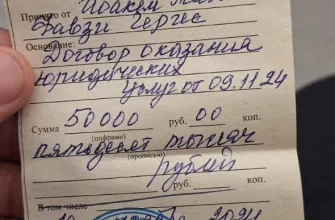 Принято от Иоаким
Фавзи Гергес
Основание:
Договор оказания
юридических
услуг от 09.11.24
Сумма 50 000 руб. 00 коп.
(цифрами)
пятьдесят тысяч
(прописью)
рублей
руб. коп.
В том числе
2024